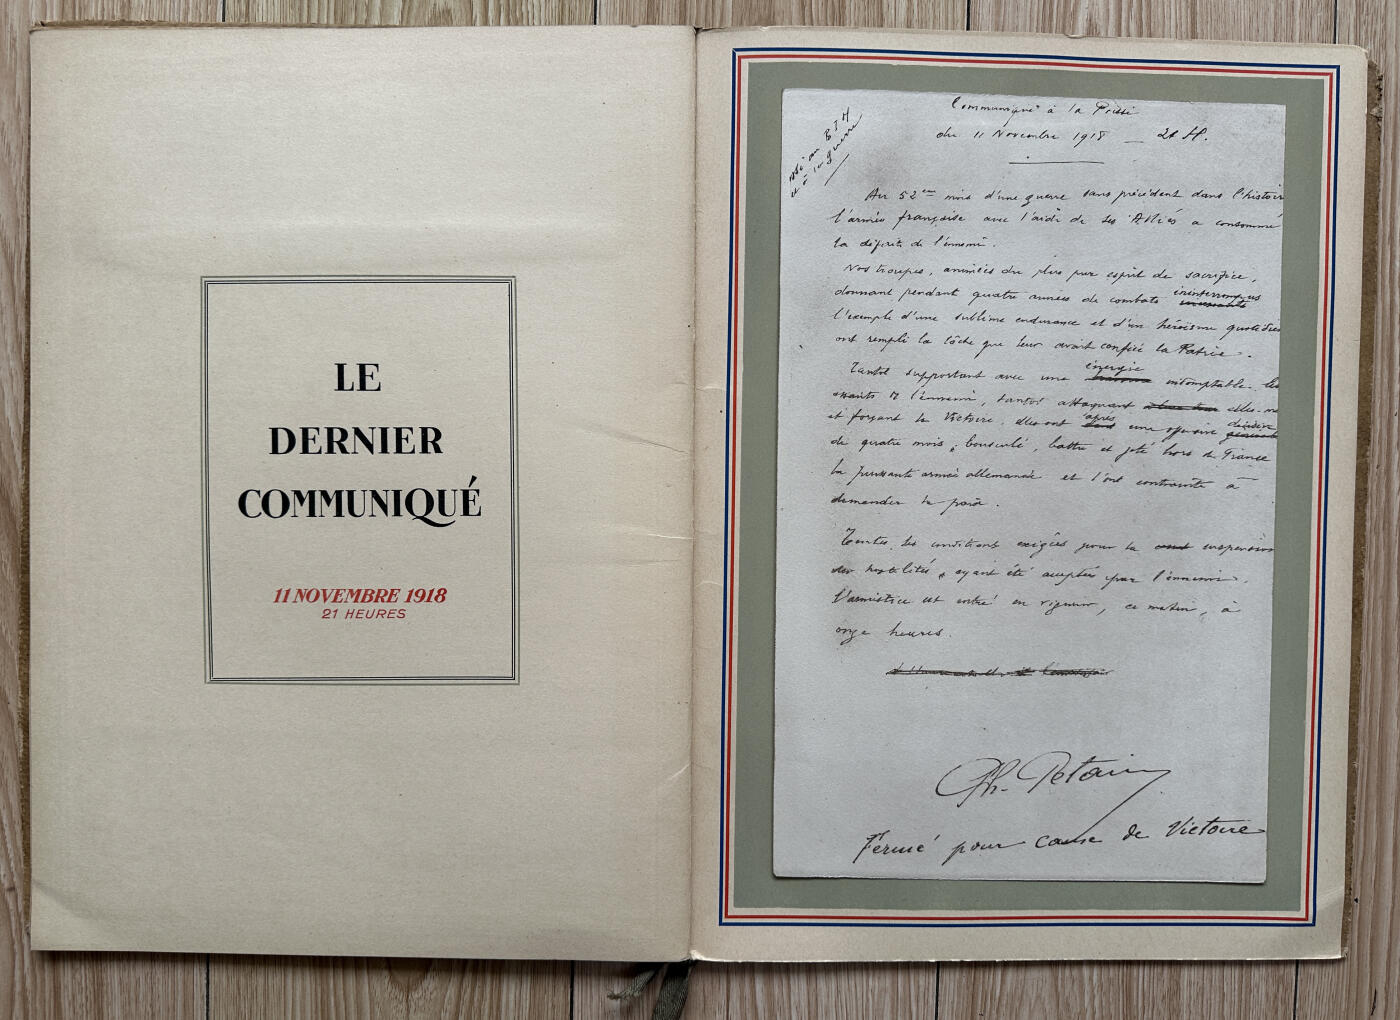 LE
DERNIER
COMMUNIQUÉ
11 NOVEMBRE 1918
21 HEURES
Communiqué à la Presse
du 11 Novembre 1918 — 21 H.
au B T H
à la guerre
Au 52em mois d'une guerre sans précédent dans l'histoire
l'armée française avec l'aide de ses Alliés a consommé
la défaite de l'ennemi.
Nos troupes, animées du plus pur esprit de sacrifice,
donnant pendant quatre années de combats ininterrompus incessants
l'exemple d'une sublime endurance et d'un héroïsme quotidien
ont rempli la tâche que leur avait confiée la Patrie.
Tantôt supportant avec une énergie indomptable les
assauts de l'ennemi, tantôt attaquant elles-mê
et forçant la Victoire, elles ont après dans une offensive décisive générale
de quatre mois, bousculé, battu et jeté hors de France
la puissante armée allemande et l'ont contrainte à
demander la paix.
Toutes les conditions exigées pour la suspension
des hostilités, ayant été acceptées par l'ennemi,
l'armistice est entré en vigueur, ce matin, à
onze heures.
Ph. Pétain
Fermé pour cause de Victoire